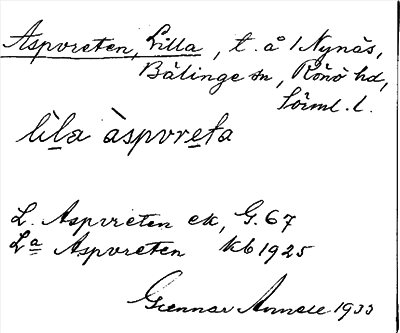 Aspvreten, Lilla, t. å 1 Nynäs,
Bälinge sn, Rönö hd,
Sörml. l.
lìla àspvreta
L. Aspvreten ek, G. 67
La Aspvreten kb 1925
Gunnar 1933